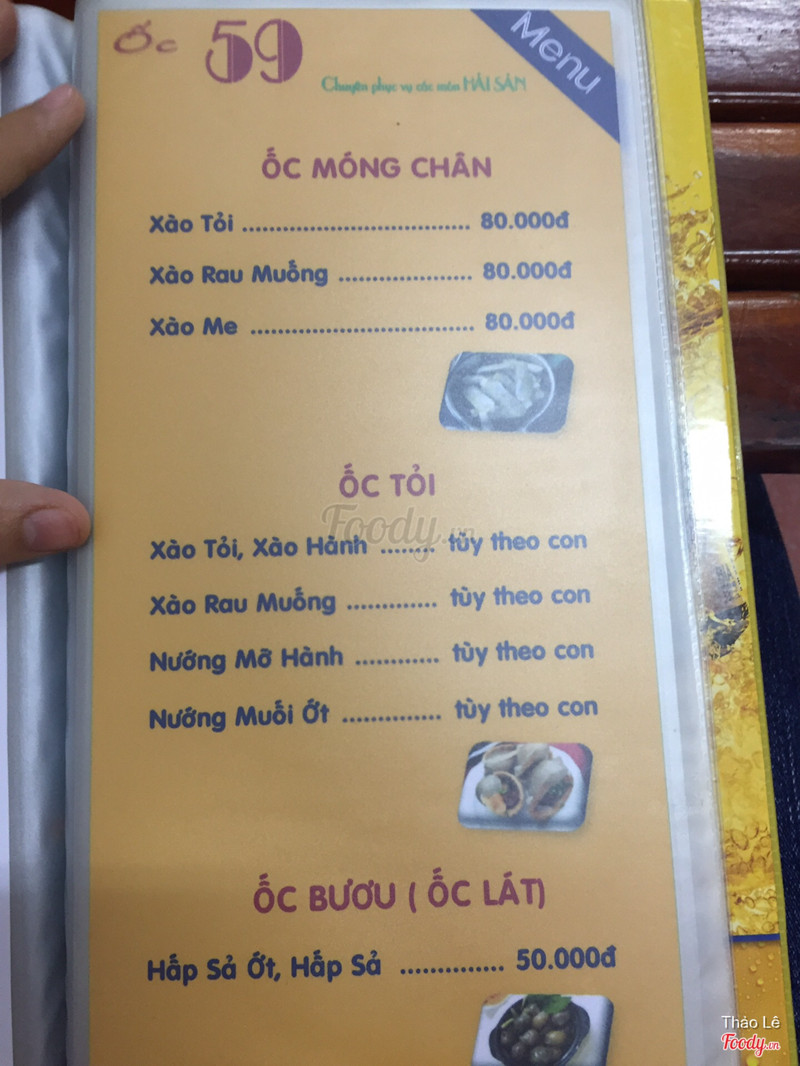 Ốc 59
Chuyên phục vụ các món HẢI SẢN
Menu
ỐC MÓNG CHÂN
Xào Tỏi .................................. 80.000đ
Xào Rau Muống .................... 80.000đ
Xào Me .................................. 80.000đ
ỐC TỎI
Foody.vn
Xào Tỏi, Xào Hành ........ tùy theo con
Xào Rau Muống ............. tùy theo con
Nướng Mỡ Hành ............ tùy theo con
Nướng Muối Ớt .............. tùy theo con
ỐC BƯƠU ( ỐC LÁT)
Hấp Sả Ớt, Hấp Sả ............... 50.000đ
Thảo Lê
Foody.vn